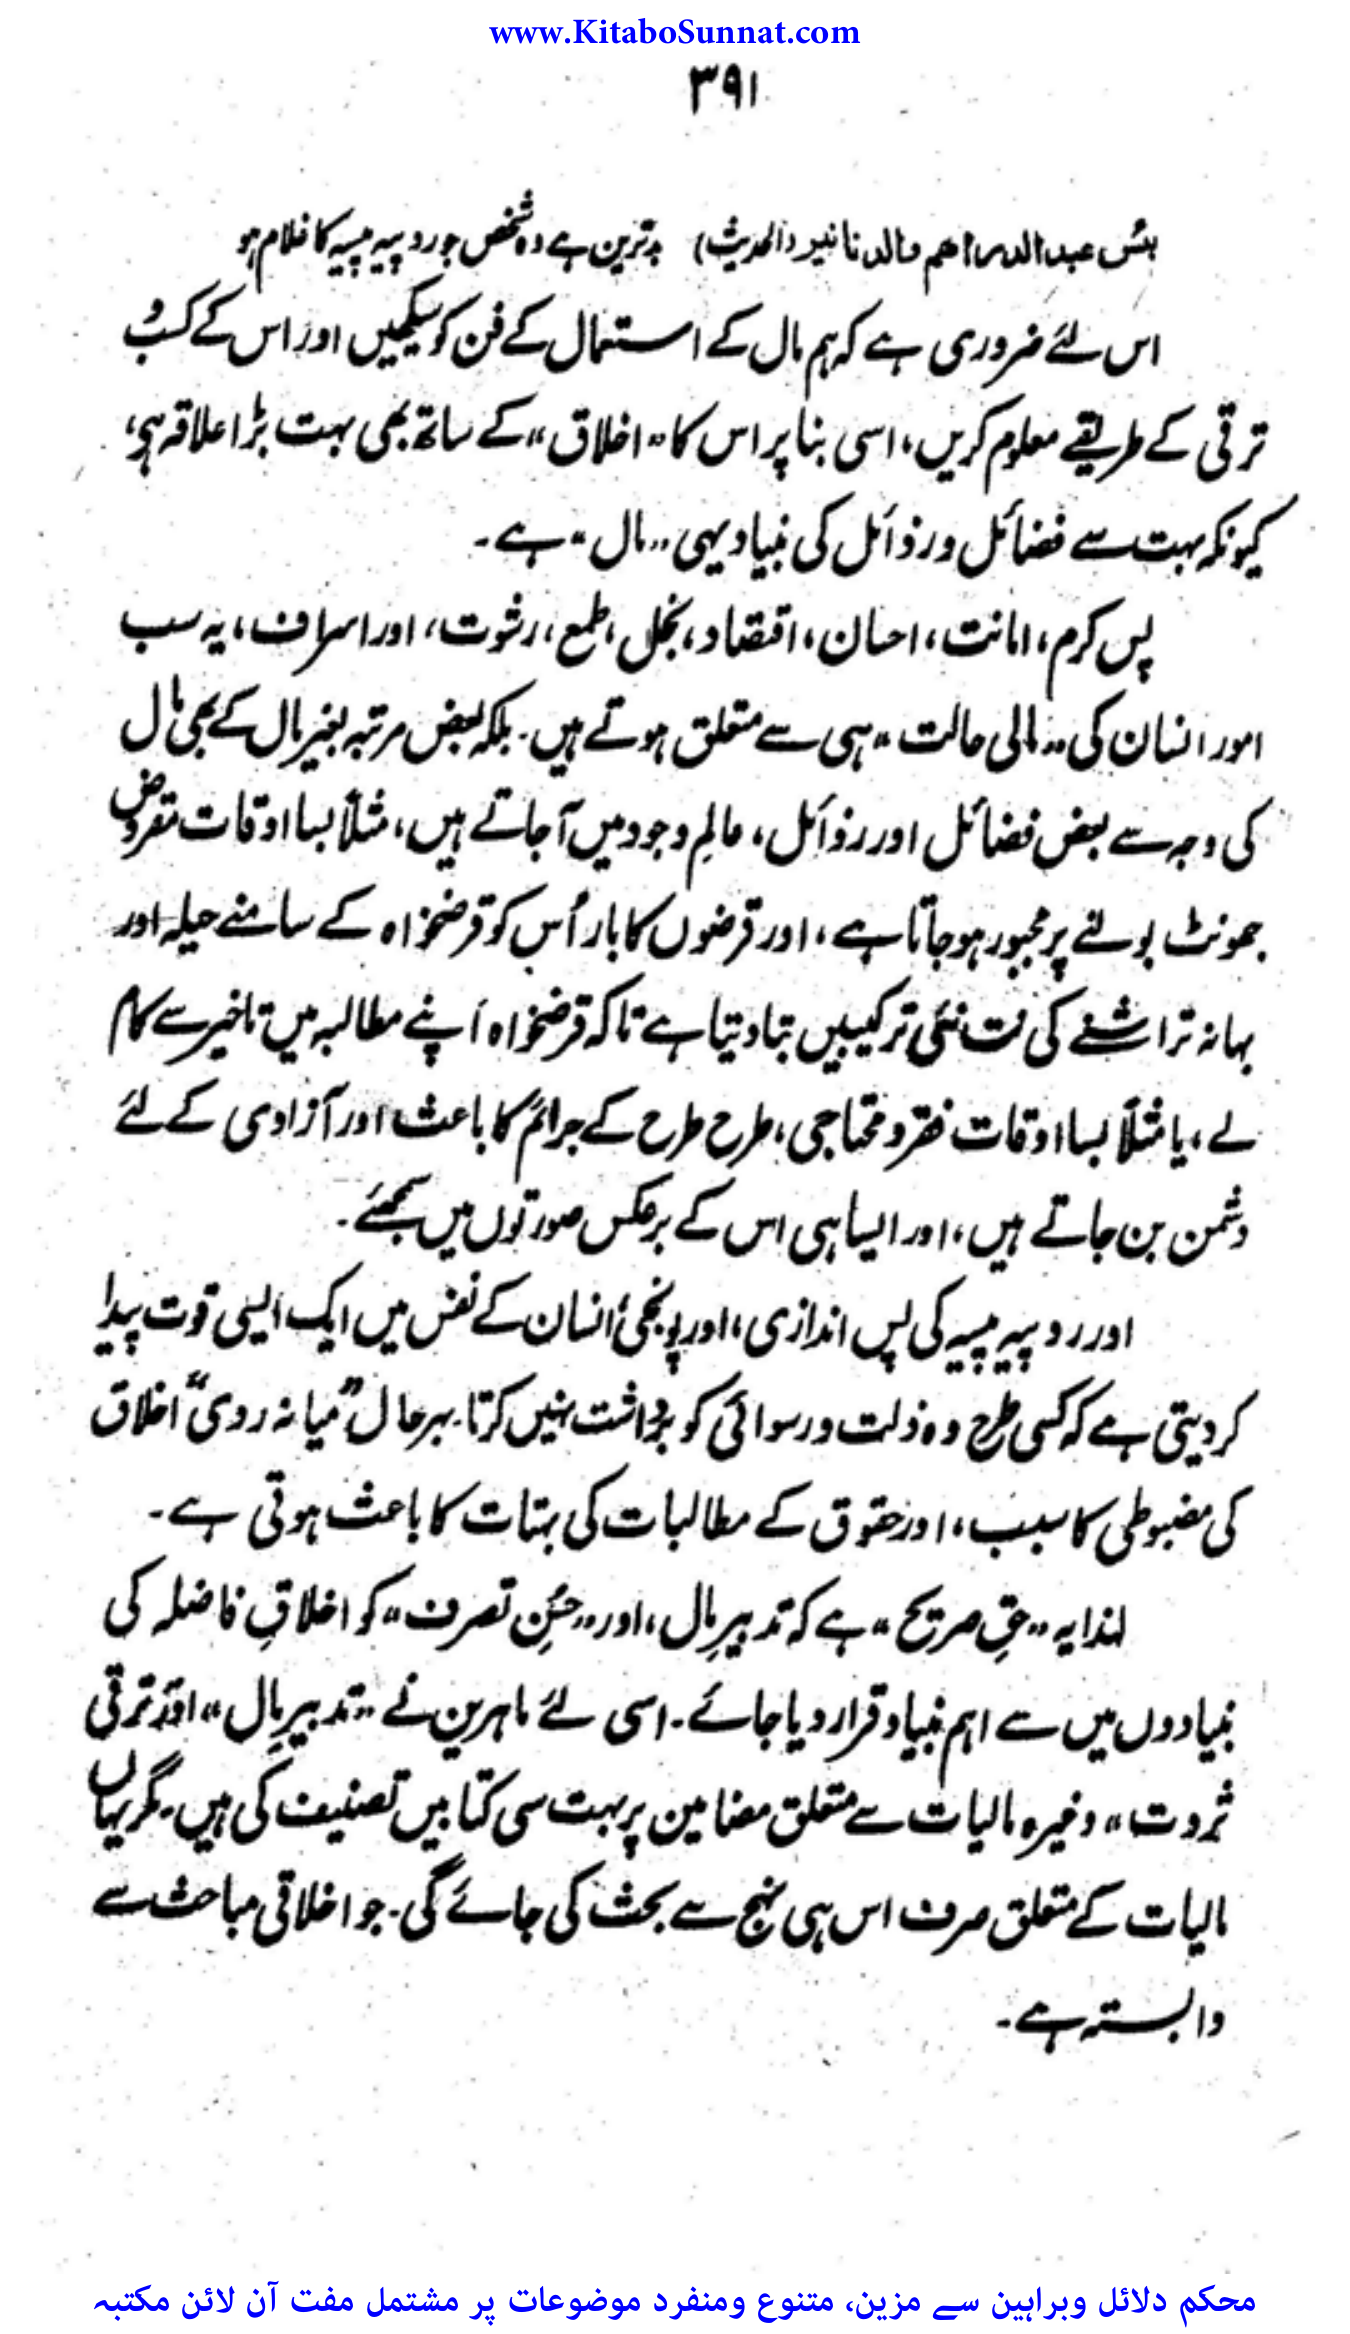 www.KitaboSunnat.com
۳۹۱
بئس عبد الدراھم والدنانیر (الحدیث) بدترین ہے وہ شخص جو روپیہ پیسہ کا غلام ہو
اس لئے ضروری ہے کہ ہم مال کے استعمال کے فن کو سیکھیں اور اس کے کسب و
ترقی کے طریقے معلوم کریں، اسی بنا پر اس کا “اخلاق” کے ساتھ بھی بہت بڑا علاقہ ہے،
کیونکہ بہت سے فضائل ورذائل کی بنیاد یہی “مال” ہے۔
پس کرم، امانت، احسان، اقتصاد، بخل، طمع، رشوت، اور اسراف، یہ سب
امور انسان کی “مالی حالت” ہی سے متعلق ہوتے ہیں۔ بلکہ بعض مرتبہ بغیر مال کے بھی مال
کی وجہ سے بعض فضائل اور رذائل، عالمِ وجود میں آجاتے ہیں، مثلاً بسا اوقات مقروض
جھونٹ بولنے پر مجبور ہوجاتا ہے، اور قرضوں کا بار اُس کو قرضخواہ کے سامنے حیلہ اور
بہانہ تراشنے کی نت نئی ترکیبیں بتا دیتا ہے تاکہ قرضخواہ اپنے مطالبہ میں تاخیر سے کام
لے، یا مثلاً بسا اوقات فقر و محتاجی، طرح طرح کے جرائم کا باعث اور آزادی کے لئے
دشمن بن جاتے ہیں، اور ایسا ہی اس کے برعکس صورتوں میں سمجھئے۔
اور روپیہ پیسہ کی پس اندازی، اور پونجی انسان کے نفس میں ایک ایسی قوت پیدا
کر دیتی ہے کہ کسی طرح وہ ذلت ورسوائی کو برداشت نہیں کرتا۔ بہرحال “میانہ روی” اخلاق
کی مضبوطی کا سبب، اور حقوق کے مطالبات کی بہتات کا باعث ہوتی ہے۔
لہٰذا یہ “حقِ صریح” ہے کہ تدبیرِ مال، اور “حسنِ تصرف” کو اخلاقِ فاضلہ کی
بنیادوں میں سے اہم بنیاد قرار دیا جائے۔ اسی لئے ماہرین نے “تدبیرِ مال” اور “ترقی
ثروت” وغیرہ مالیات سے متعلق مضامین پر بہت سی کتابیں تصنیف کی ہیں۔ مگر یہاں
مالیات کے متعلق صرف اس ہی نہج سے بحث کی جائے گی۔ جو اخلاقی مباحث سے
وابستہ ہے۔
محکم دلائل وبراہین سے مزین، متنوع ومنفرد موضوعات پر مشتمل مفت آن لائن مکتبہ